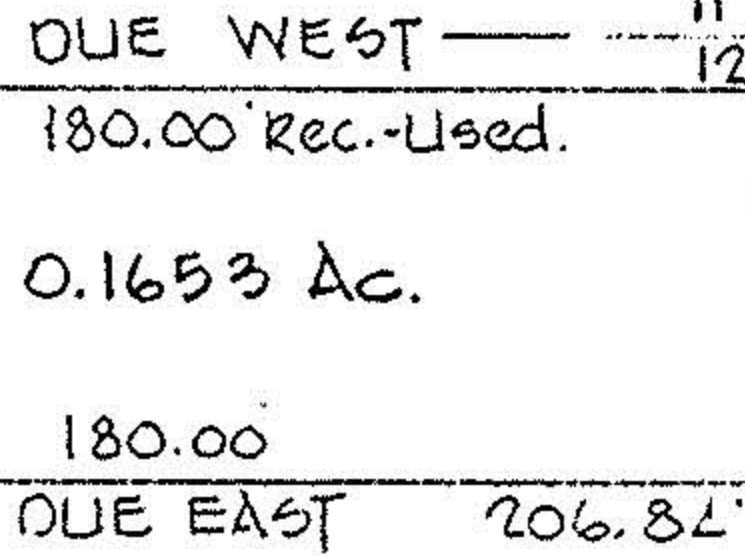 DUE WEST
11
12
180.00' Rec.-Used.
0.1653 Ac.
180.00
DUE EAST